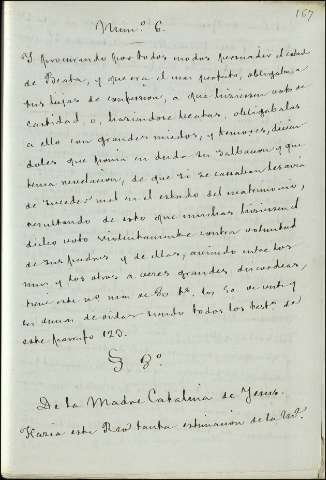 167
Num.º 6.
Y procurando por todos modos persuader el estad
de Beata, y que era el mas perfecto, obligaba a
sus hijas de confesion, a que hiciesen voto de
castidad o, haciendose beatas, obligabalas
a ello con grandes miedos, y temores, dicien
doles que ponia en duda su salbacion y que
tenia revelacion, de que si se casaban les avia
de suceder mal en el estado del matrimonio,
resultando de esto que muchas hiciesen el
dicho voto violentamente contra voluntad
de sus padres y de ellas, aviendo entre los
unos y los otros a veces grandes discordias,
tiene este no mas de 80 t.º los 50 de vista y
los demas de oidas siendo todos los test.º de
este proverto 123.
§ 3º
De la Madre Catalina de Jesus.
Hacia este Reo tanta estimacion de la M.e